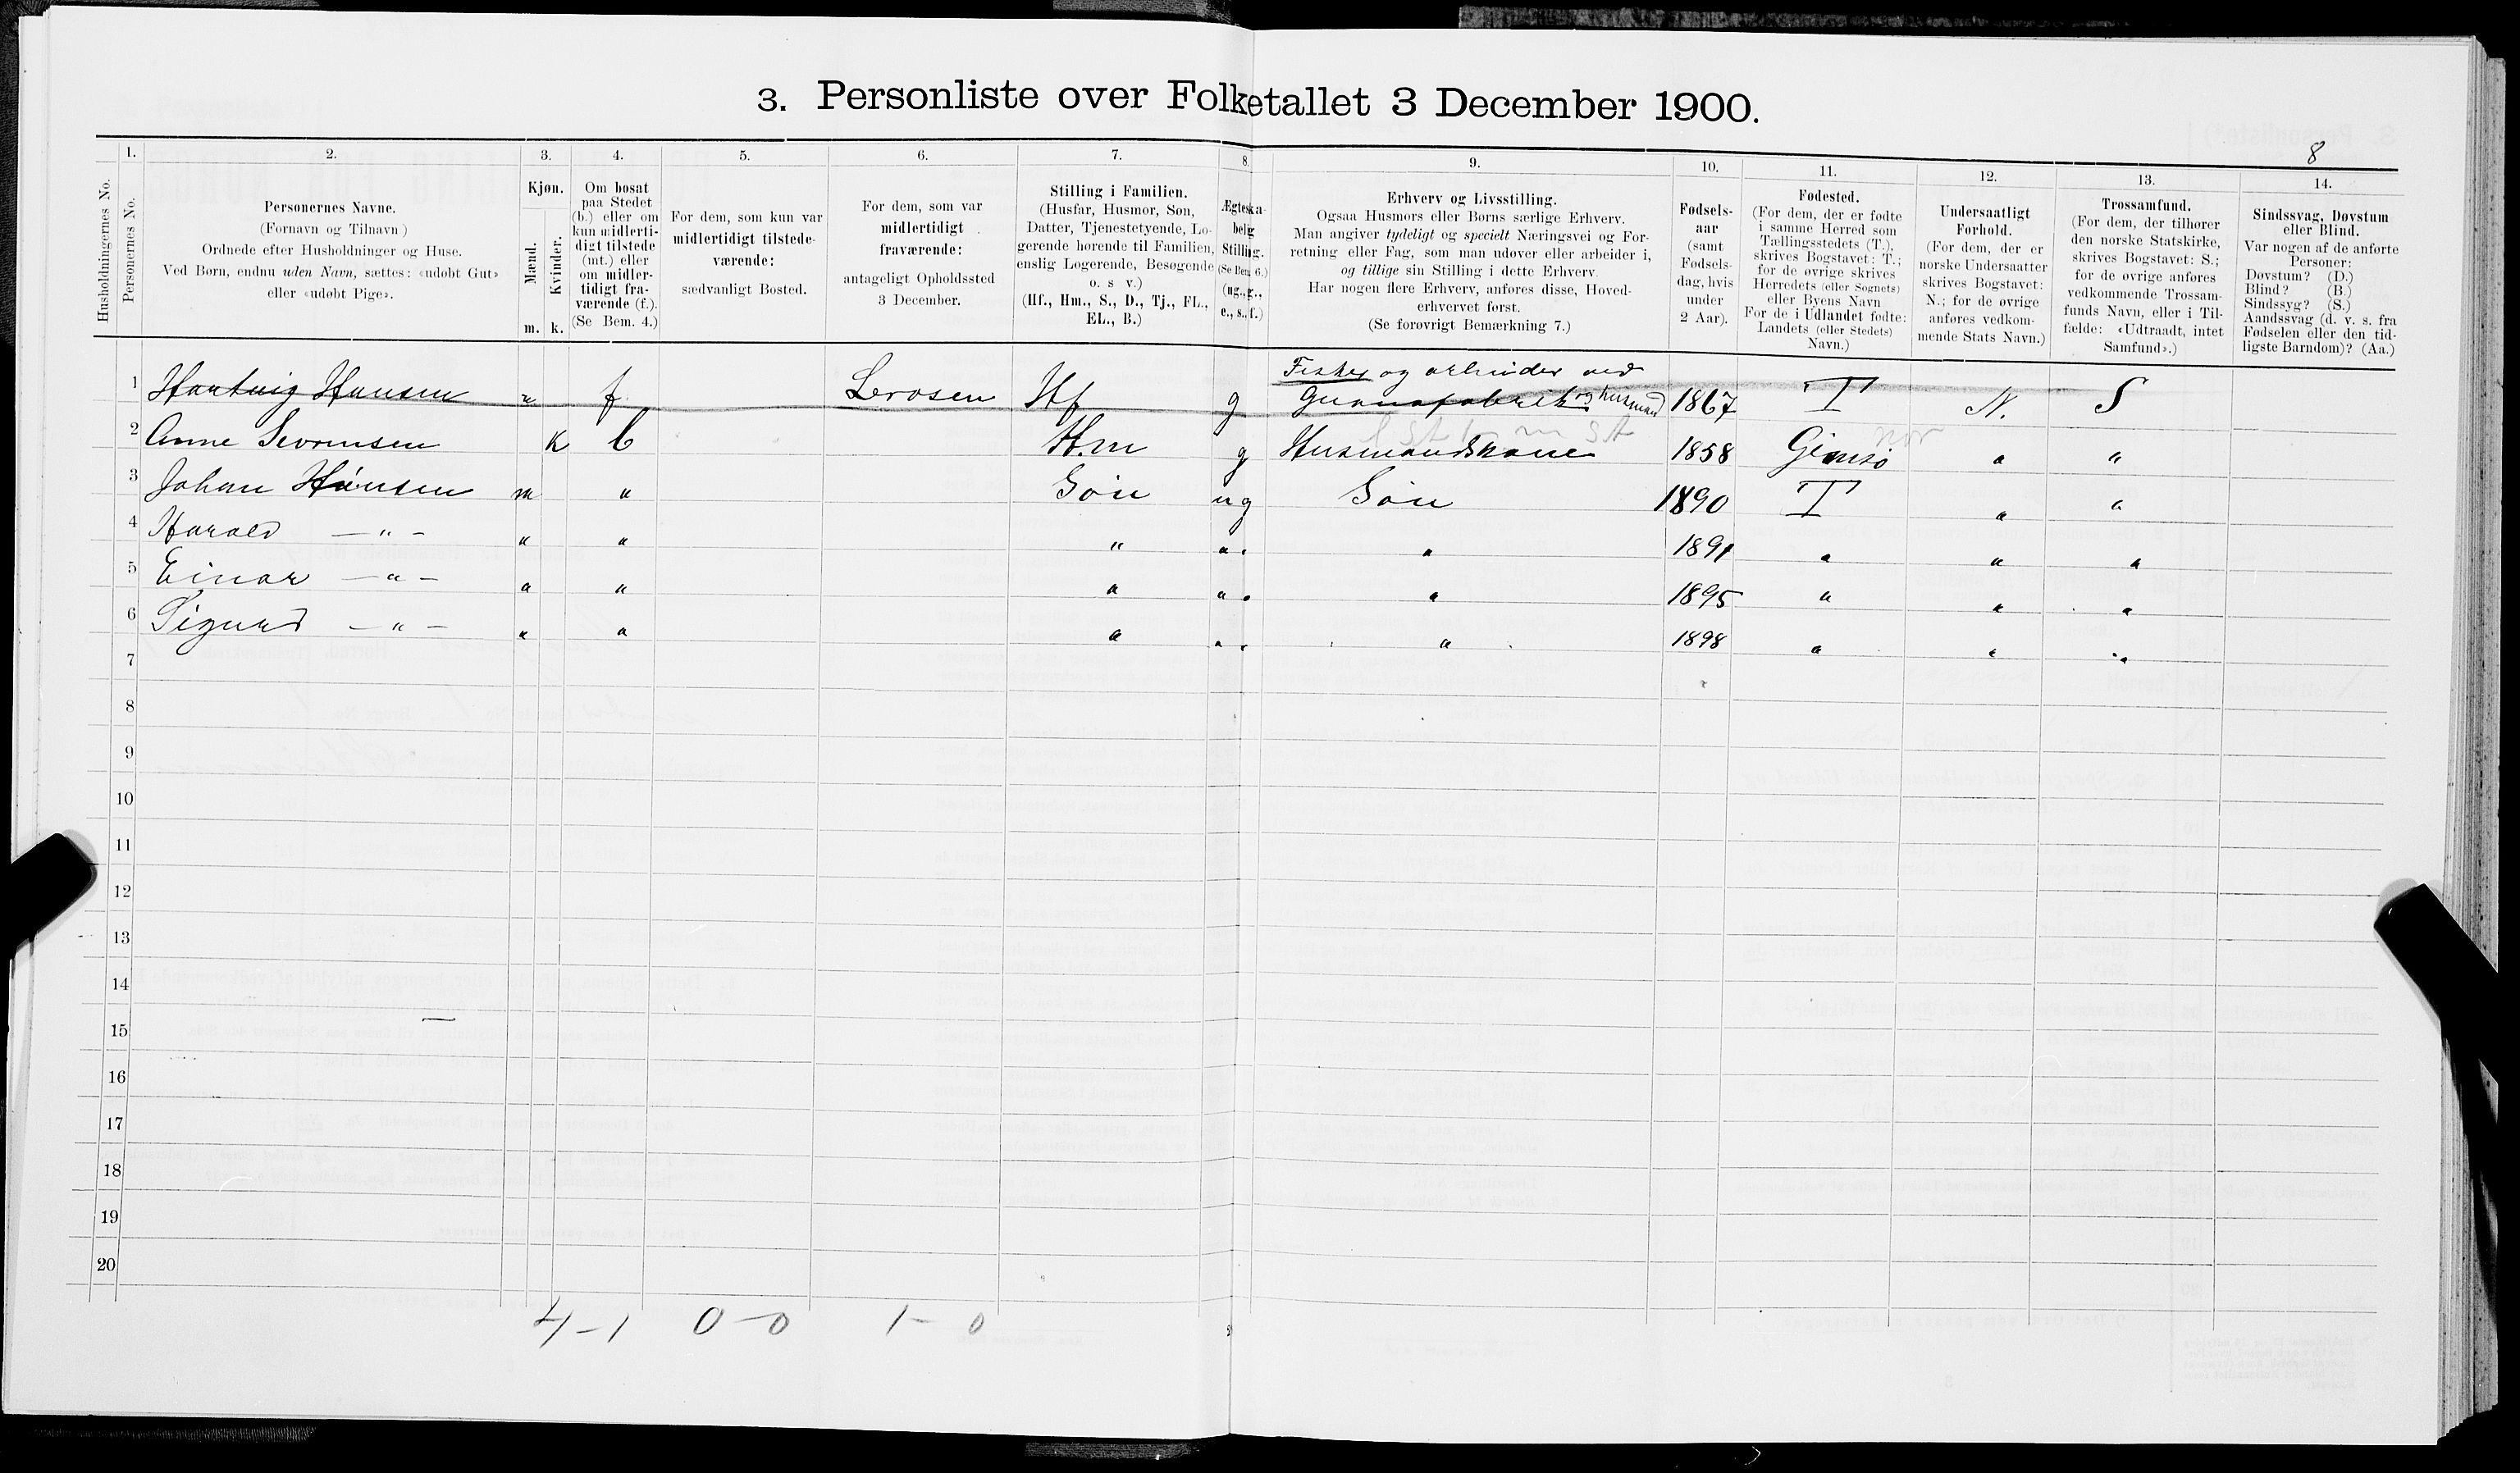 3. Personliste over Folketallet 3 December 1900.
8
1. 2. 3. 4. 5. 6. 7. 8. 9. 10. 11. 12. 13. 14.
Husholdningernes No.
Personernes No.
Personernes Navne.
(Fornavn og Tilnavn)
Ordnede efter Husholdninger og Huse.
Ved Børn, endnu uden Navn, sættes: «udøbt Gut»
eller «udøbt Pige».
Kjøn.
Mænd.
Kvinder.
m. k.
Om bosat
paa Stedet
(b.) eller om
kun midlerti-
digt tilstede
(mt.) eller
om midler-
tidigt fra-
værende (f.).
(Se Bem. 4.)
For dem, som kun var
midlertidigt tilstede-
værende:
sædvanligt Bosted.
For dem, som var
midlertidigt
fraværende:
antageligt Opholdssted
3 December.
Stilling i Familien.
(Husfar, Husmor, Søn,
Datter, Tjenestetyende, Lo-
gerende hørende til Familien,
enslig Logerende, Besøgende
o. s v.)
(Hf., Hm., S., D., Tj., FL.,
EL., B.)
Ægteska-
belig
Stilling.
(Se Bem. 6.)
(ug., g.,
e., s., f.)
Erhverv og Livsstilling.
Ogsaa Husmors eller Børns særlige Erhverv.
Man angiver tydeligt og specielt Næringsvei og For-
retning eller Fag, som man udøver eller arbeider i,
og tillige sin Stilling i dette Erhverv.
Har nogen flere Erhverv, anføres disse, Hoved-
erhvervet først.
(Se forøvrigt Bemærkning 7.)
Fødsels-
aar
(samt
Fødsels-
dag, hvis
under
2 Aar).
Fødested.
(For dem, der er fødte
i samme Herred som
Tællingsstedets (T.),
skrives Bogstavet: T.;
for de øvrige skrives
Herredets (eller Sognets)
eller Byens Navn
For de i Udlandet fødte:
Landets (eller Stedets)
Navn.)
Undersaatligt
Forhold.
(For dem, der er
norske Undersaatter
skrives Bogstavet:
N.; for de øvrige
anføres vedkom-
mende Stats Navn.)
Trossamfund.
(For dem, der tilhører
den norske Statskirke,
skrives Bogstavet: S.;
for de øvrige anføres
vedkommende Trossam-
funds Navn, eller i Til-
fælde: «Udtraadt, intet
Samfund».)
Sindssvag, Døvstum
eller Blind.
Var nogen af de anførte
Personer:
Døvstum? (D.)
Blind? (B.)
Sindssyg? (S.)
Aandssvag (d. v. s. fra
Fødselen eller den tid-
ligste Barndom)? (Aa.)
Fisker og arbeider ved
1 Hartvig Hansen m f Lerosen Hf g Guanofabrik og husmand 1867 T N. S
2 Anne Sevrensen k b Hm g Husmandskone 1858 Gimsø " "
3 Johan Hansen m " Søn ug Søn 1890 T " "
4 Harald — " — " " " " " 1891 " " "
5 Einar — " — " " " " " 1895 " " "
6 Sigurd — " — " " " " " 1898 " " "
7
8
9
10
11
12
13
14
15
16
17
18
19
20
4 – 1 0 – 0 1 – 0